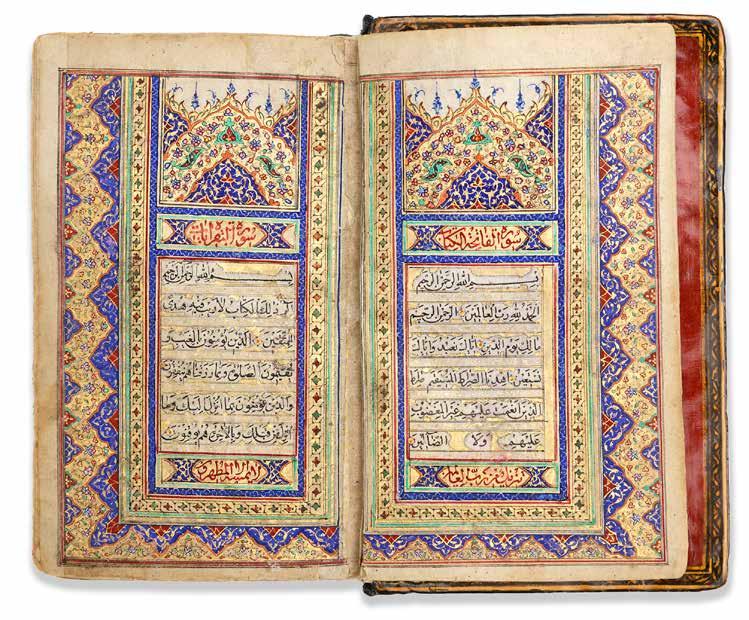 سورة الفاتحة الكتاب
بسم الله الرحمن الرحيم
الحمد لله رب العالمين الرحمن الرحيم
مالك يوم الدين اياك نعبد واياك
نستعين اهدنا الصراط المستقيم صراط
الذين انعمت عليهم غير المغضوب
عليهم ولا الضالين
تنزيل من رب العالمين
سورة البقرة
بسم الله الرحمن الرحيم
الم ذلك الكتاب لا ريب فيه هدى
للمتقين الذين يؤمنون بالغيب و
يقيمون الصلوة ومما رزقناهم ينفقون
والذين يؤمنون بما انزل اليك وما
انزل من قبلك وبالاخرة هم يوقنون
لا يمسه الا المطهرون